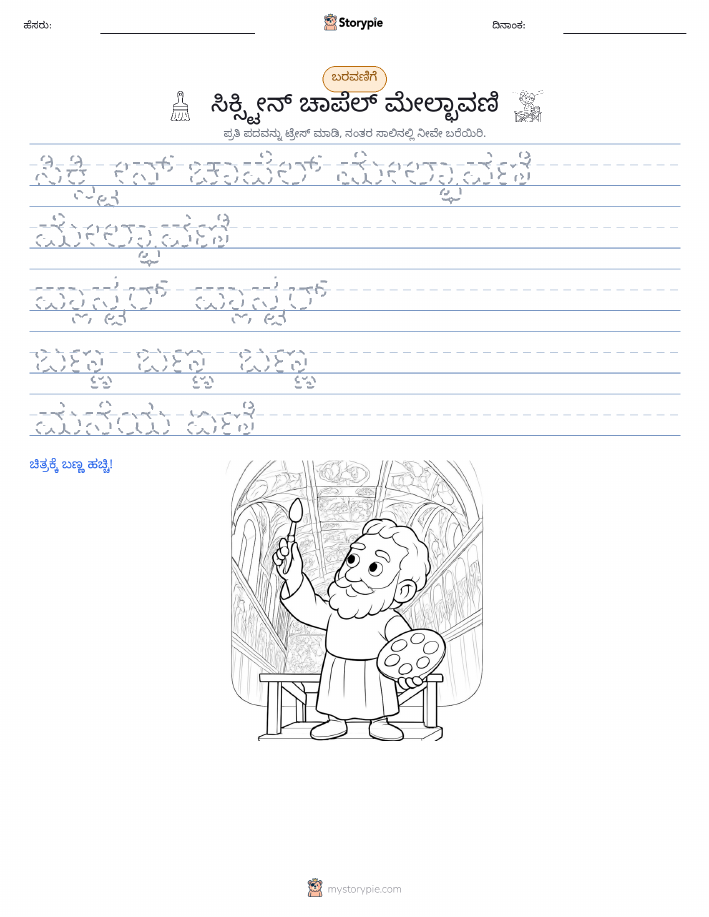 ಹೆಸರು:
Storypie
ದಿನಾಂಕ:
ಬರವಣಿಗೆ
ಸಿಕ್ಸ್ಟೀನ್ ಚಾಪೆಲ್ ಮೇಲ್ಛಾವಣಿ
ಪ್ರತಿ ಪದವನ್ನು ಟ್ರೇಸ್ ಮಾಡಿ, ನಂತರ ಸಾಲಿನಲ್ಲಿ ನೀವೇ ಬರೆಯಿರಿ.
ಸಿಕ್ಸ್ಟೀನ್ ಚಾಪೆಲ್ ಮೇಲ್ಛಾವಣಿ
ಮೇಲ್ಛಾವಣಿ
ಪ್ಲಾಸ್ಟರ್ ಪ್ಲಾಸ್ಟರ್
ಬಣ್ಣ ಬಣ್ಣ ಬಣ್ಣ
ಮನೆಯ ಏಣಿ
ಚಿತ್ರಕ್ಕೆ ಬಣ್ಣ ಹಚ್ಚಿ!
mystorypie.com